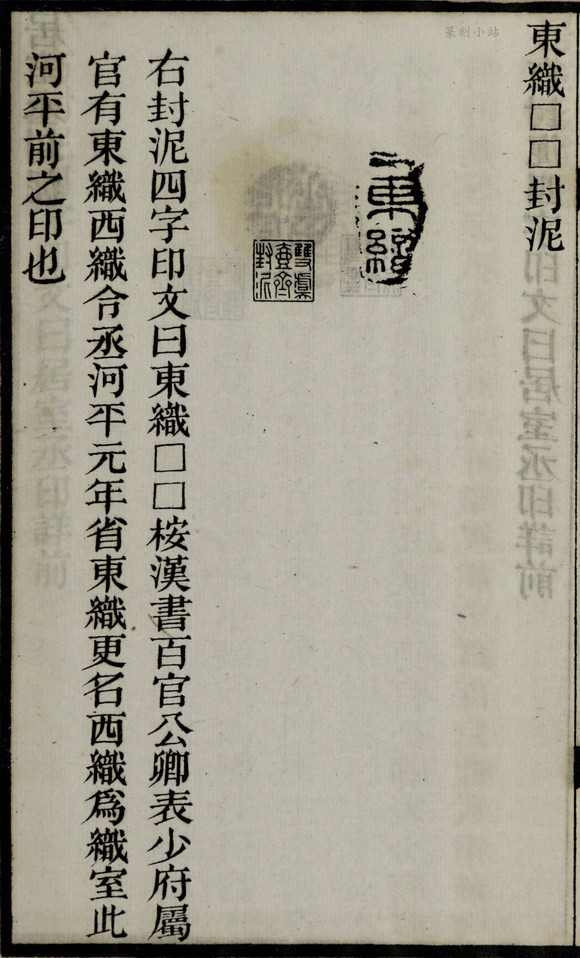 東織□□封泥
篆刻小站
東織
雙虞壺齋封泥
右封泥四字印文曰東織□□桉漢書百官公卿表少府屬
官有東織西織令丞河平元年省東織更名西織為織室此
河平前之印也